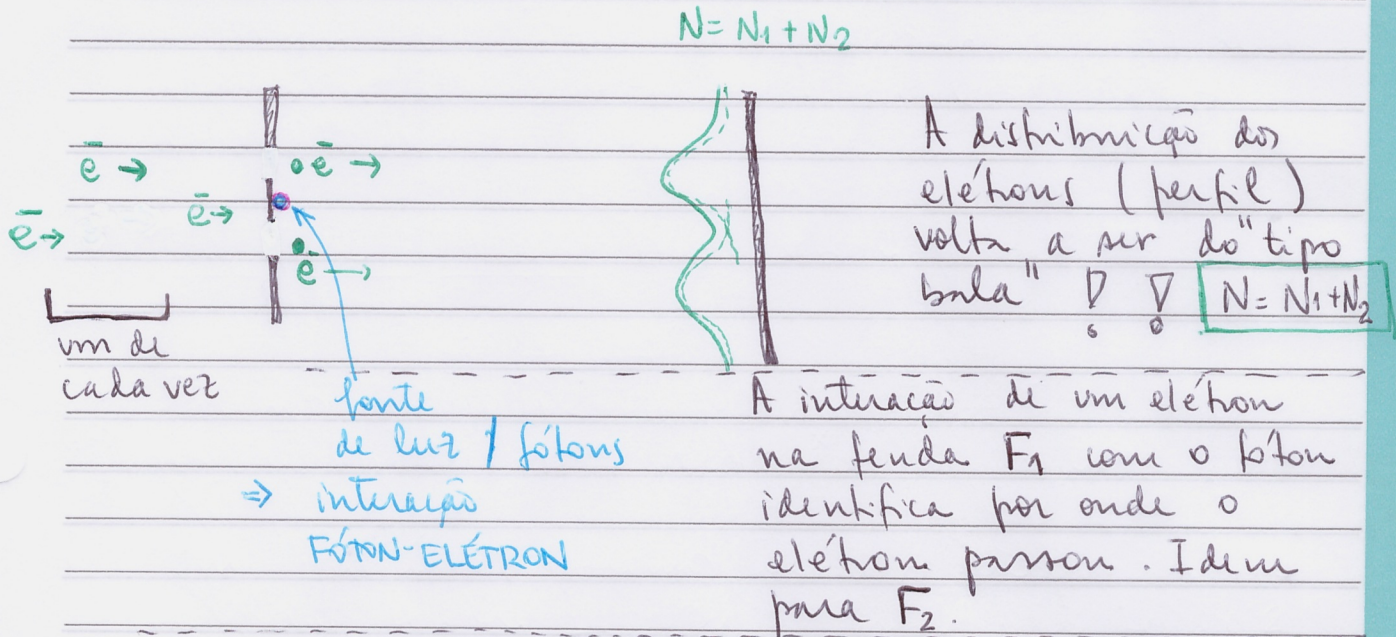 N = N₁ + N₂
e⁻ →
e⁻ →
e⁻ →
e⁻ →
e⁻ →
um de
cada vez
fonte
de luz / fótons
⇒ interação
FÓTON-ELÉTRON
A distribuição dos
elétrons (perfil)
volta a ser do "tipo
bala" ! ! N = N₁ + N₂
A interação de um elétron
na fenda F₁ com o fóton
identifica por onde o
elétron passou. Idem
para F₂.